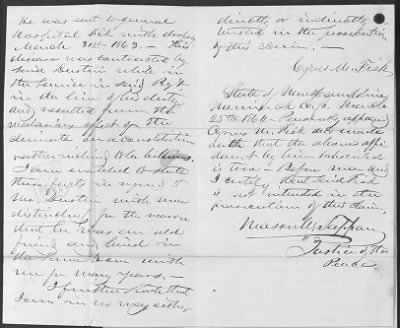 He was sent to general
Hospital sick with dropsy
March 31st 1863. — this
disease was contracted by
said Dustin while in
the service in said Regt
in the line of his duty
and resulted from the
effect of the
climate on a constitution
I am enabled to state
these facts in regard to
Mr. Dustin with more
distinctness for the reason
that he was an old
friend and lived in
the same town with
me for many years. —
I further state that
I am in no way either
directly or indirectly
interested in the prosecution
of this claim. —
Cyrus M. Fisk
State of New Hampshire
Merrimack Co. ss. March
25th 1864 — Personally appeared
Cyrus M. Fisk and made
oath that the above affi-
davit by him subscribed
is true — Before me — and
I certify that said Fisk
is not interested in the
prosecution of this claim,
Mason W. Tappan
Justice of the
Peace